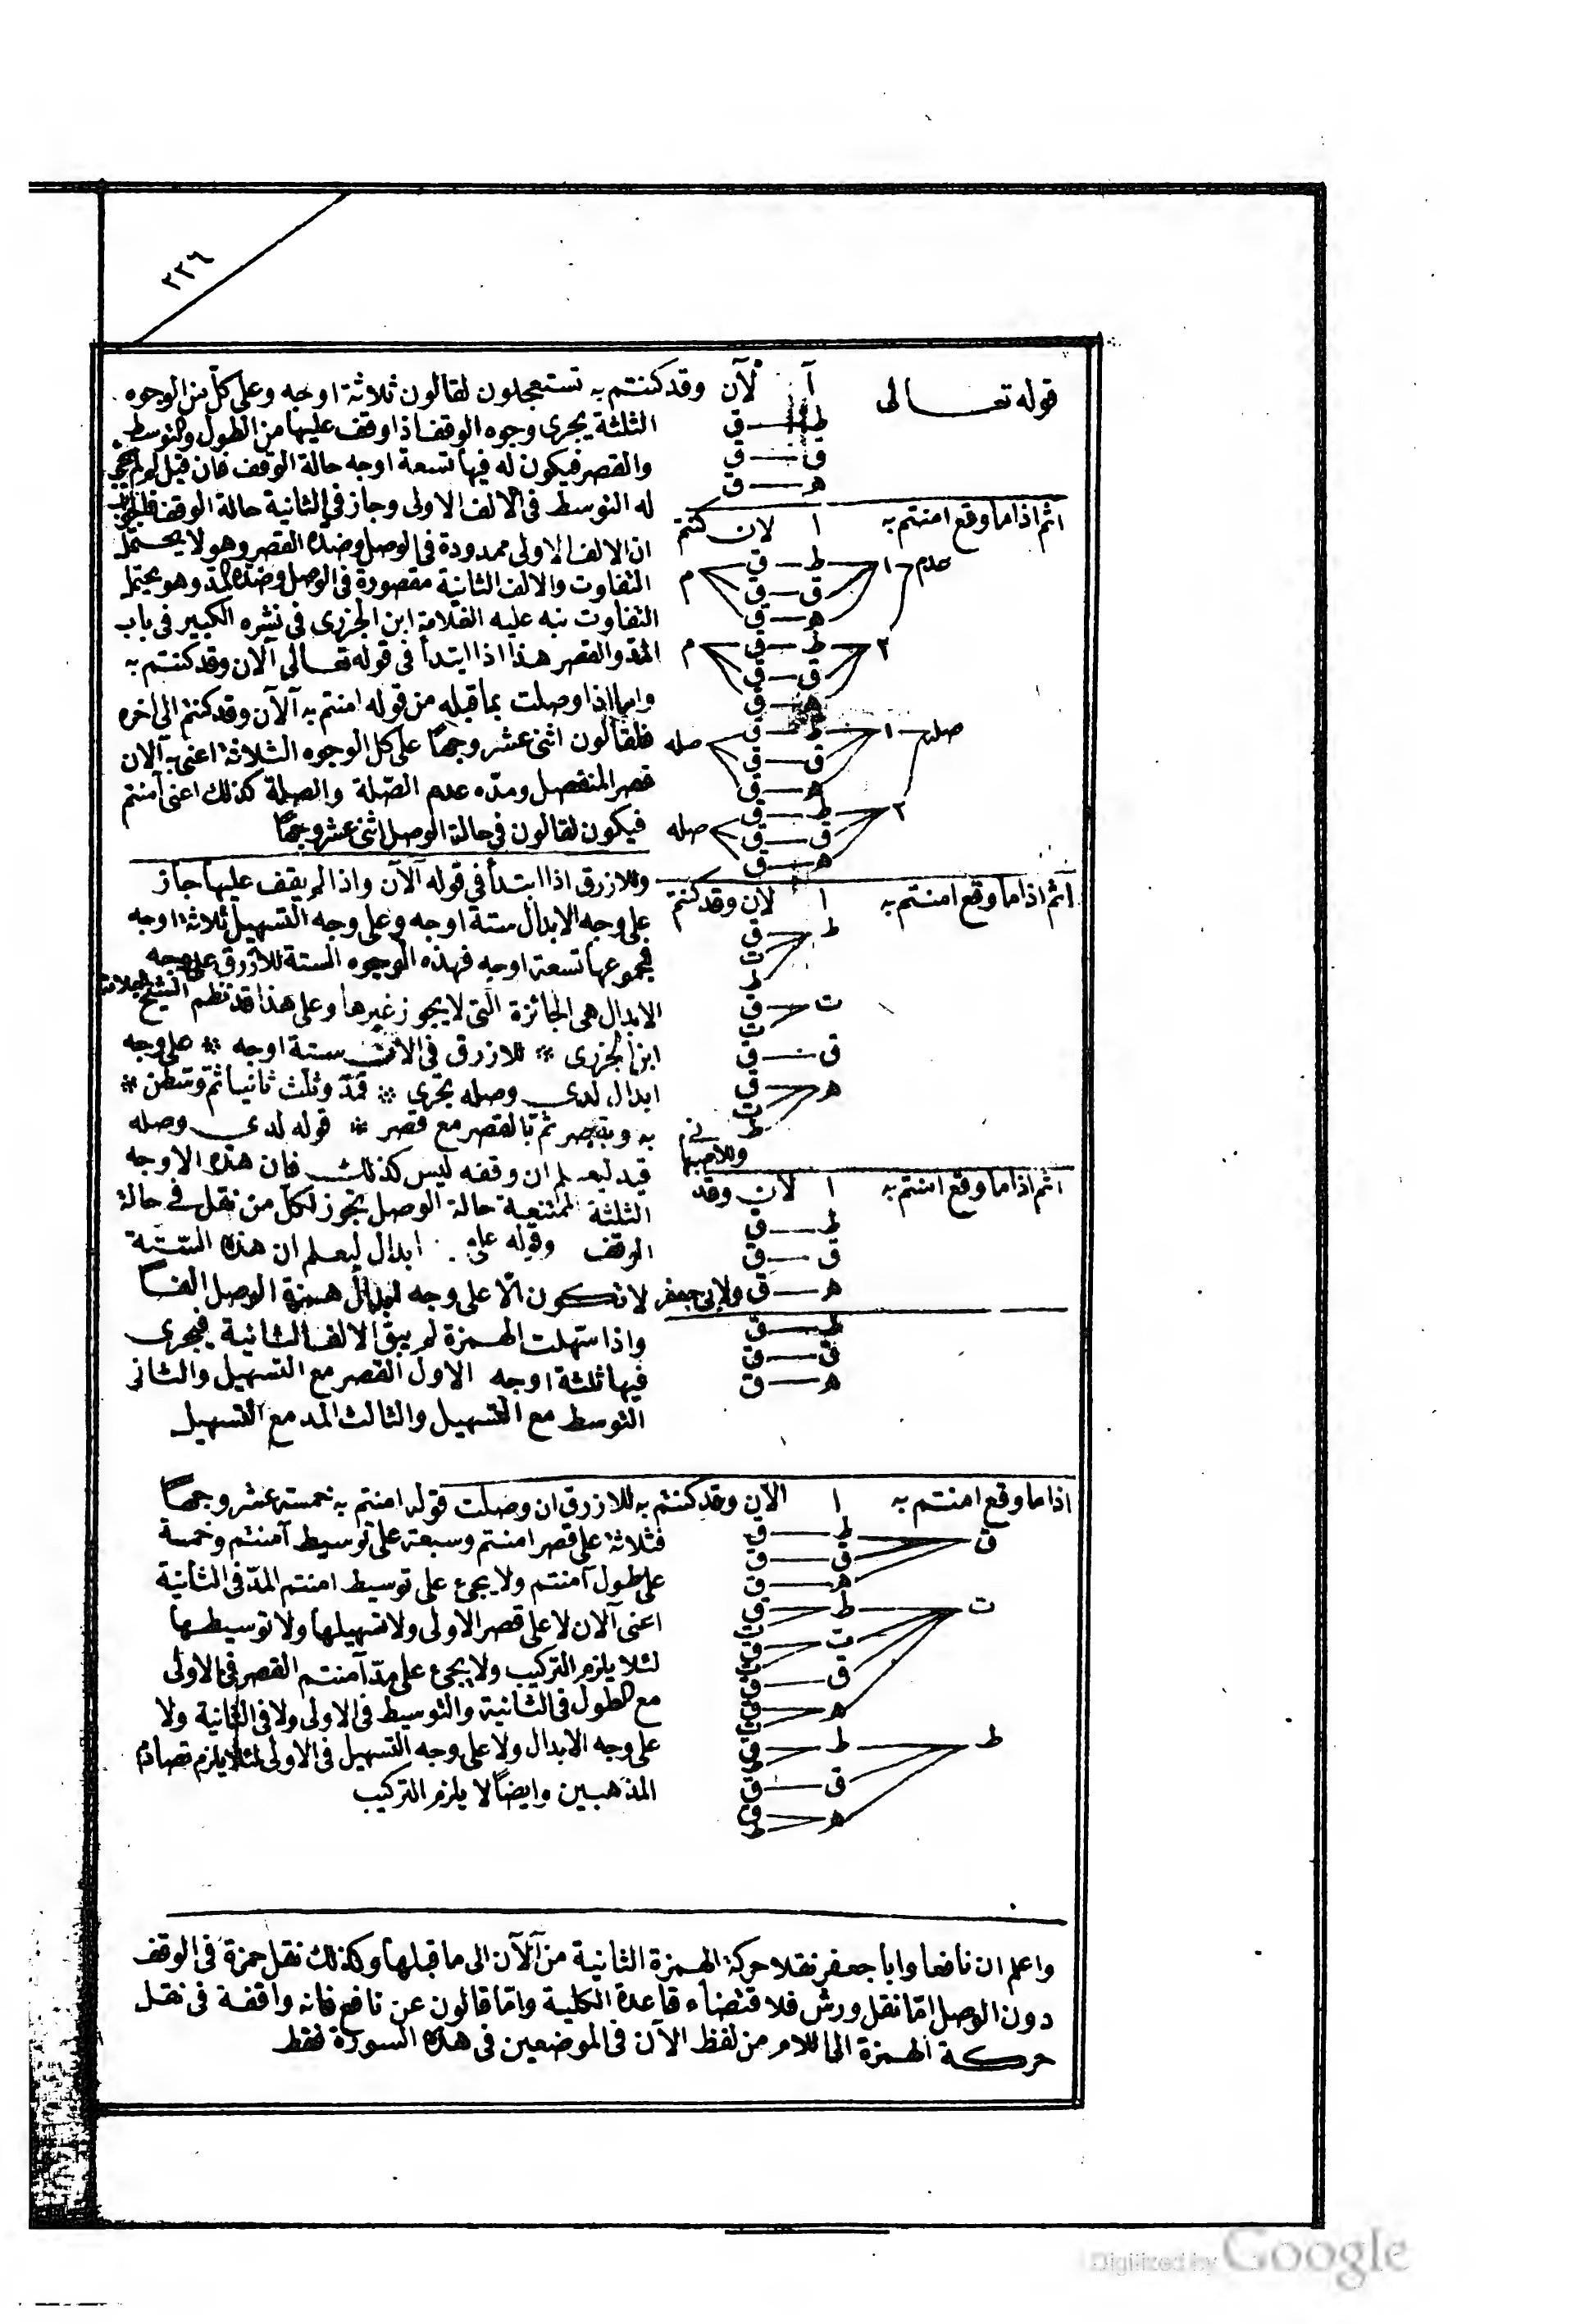 ٢٢٦
قوله تعالى آ لآن وقد كنتم به تستعجلون لقالون ثلاثة اوجه وعلى كلّ من الوجوه
ط ق الثلثة يجرى وجوه الوقف اذا وقف عليها من الطول والتوسط
ق ق والقصر فيكون له فيها تسعة اوجه حالة الوقف فان قيل لم
ه ق له التوسط فى الالف الاولى وجاز فى الثانية حالة الوقف
اثم اذا ما وقع امنتم به ا لان كنتم ان الالف الاولى ممدودة فى الوصل وضده القصر وهو لا يحتمل
عدم ١ ط ق م التفاوت والالف الثانية مقصورة فى الوصل وضده المد وهو يحتمل
ق ق
ه ق التفاوت نبه عليه العلامة ابن الجزرى فى نشره الكبير فى باب
٢ ط ق م المدّ والقصر هذا اذا ابتدأ فى قوله تعالى آلان وقد كنتم به
ق ق
ه ق واما اذا وصلت بما قبله من قوله امنتم به آلآن وقد كنتم الى اخره
صله ١ ط ق صله فلقالون اثنى عشر وجهًا على كل الوجوه الثلاثة اعنى به آلان
ق ق
ه ق قصر المنفصل ومده عدم الصّلة والصلة كذلك اعنى آمنتم
٢ ط ق صله فيكون لقالون فى حالة الوصل اثنى عشر وجهًا
ق ق
ه ق
اثم اذا ما وقع امنتم به ا لان وقد كنتم وللازرق اذا ابتدأ فى قوله آلآن واذا لم يقف عليها جاز
ط ق على وجه الابدال ستة اوجه وعلى وجه التسهيل ثلاثة اوجه
ت
ط فمجموعها تسعة اوجه فهذه الوجوه الستة للازرق على وجه
ت ق الابدال هى الجائزة التى لا يجوز غيرها وعلى هذا قد نظم الشيخ العلامة
ت
ق ق ابن الجزرى ※ للازرق فى الآن ستة اوجه ※ على وجه
ه ق ابدال لدى وصله تجرى ※ فمدّ وثلّث ثانيا ثم وسّطن ※
ت
ط به وبقصر ثم بالقصر مع قصر ※ قوله لدى وصله
وللاصبهانى قيد ليعلم ان وقفه ليس كذلك فان هذه الاوجه
اثم اذا ما وقع امنتم به ا لان وقد الثلثة الممتنعة حالة الوصل تجوز لكل من نقل فى حالة
ط ق الوقف وقوله على ابدال ليعلم ان هذه الستة
ق ق
ه ق ولابى جعفر لا تكون الّا على وجه ابدال همزة الوصل الفًا
ط ق واذا سهلت الهمزة لم يبق الا الالف الثانية فيجرى
ق ق فيها ثلثة اوجه الاول القصر مع التسهيل والثانى
ه ق التوسط مع التسهيل والثالث المد مع التسهيل
اذا ما وقع امنتم به ا الآن وقد كنتم به للازرق ان وصلت قوله امنتم به خمسة عشر وجهًا
ق ط ق فثلاثة على قصر امنتم وسبعة على توسيط آمنتم وخمسة
ق ق
ه ق على طول آمنتم ولا يجئ على توسيط امنتم المدّ فى الثانية
ت ط ق ت اعنى آلان لا على قصر الاولى ولا تسهيلها ولا توسيطها
ت ق ت لئلا يلزم التركيب ولا يجئ على مدّ آمنتم القصر فى الاولى
ق ق
ه ق ت مع الطول فى الثانية والتوسيط فى الاولى ولا فى الثانية ولا
ط ط ق ط على وجه الابدال ولا على وجه التسهيل فى الاولى لئلا يلزم تصادم
ق ق المذهبين وايضًا لا يلزم التركيب
ه ق ط
واعلم ان نافعا وابا جعفر نقلا حركة الهمزة الثانية من آلآن الى ما قبلها وكذلك نقل حمزة فى الوقف
دون الوصل امّا نقل ورش فلاقتضاء قاعدة الكلية وامّا قالون عن نافع فانه وافقه فى نقل
حركة الهمزة الى اللام من لفظ الآن فى الموضعين فى هذه السورة فقط
Digitized by Google